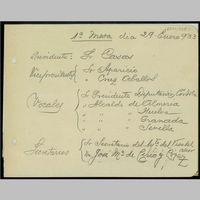 1ª Mesa dia 29 Enero 933
Presidente: Sr Cascos
Vicepresidentes Sr Aparicio
" Cruz Ceballos
Vocales Sr Presidente Diputación Córdoba
" Alcalde de Almería
" " " Huelva
" " " Granada
" " " Sevilla
Secretarios Sr Secretario del
Dn José Mª de